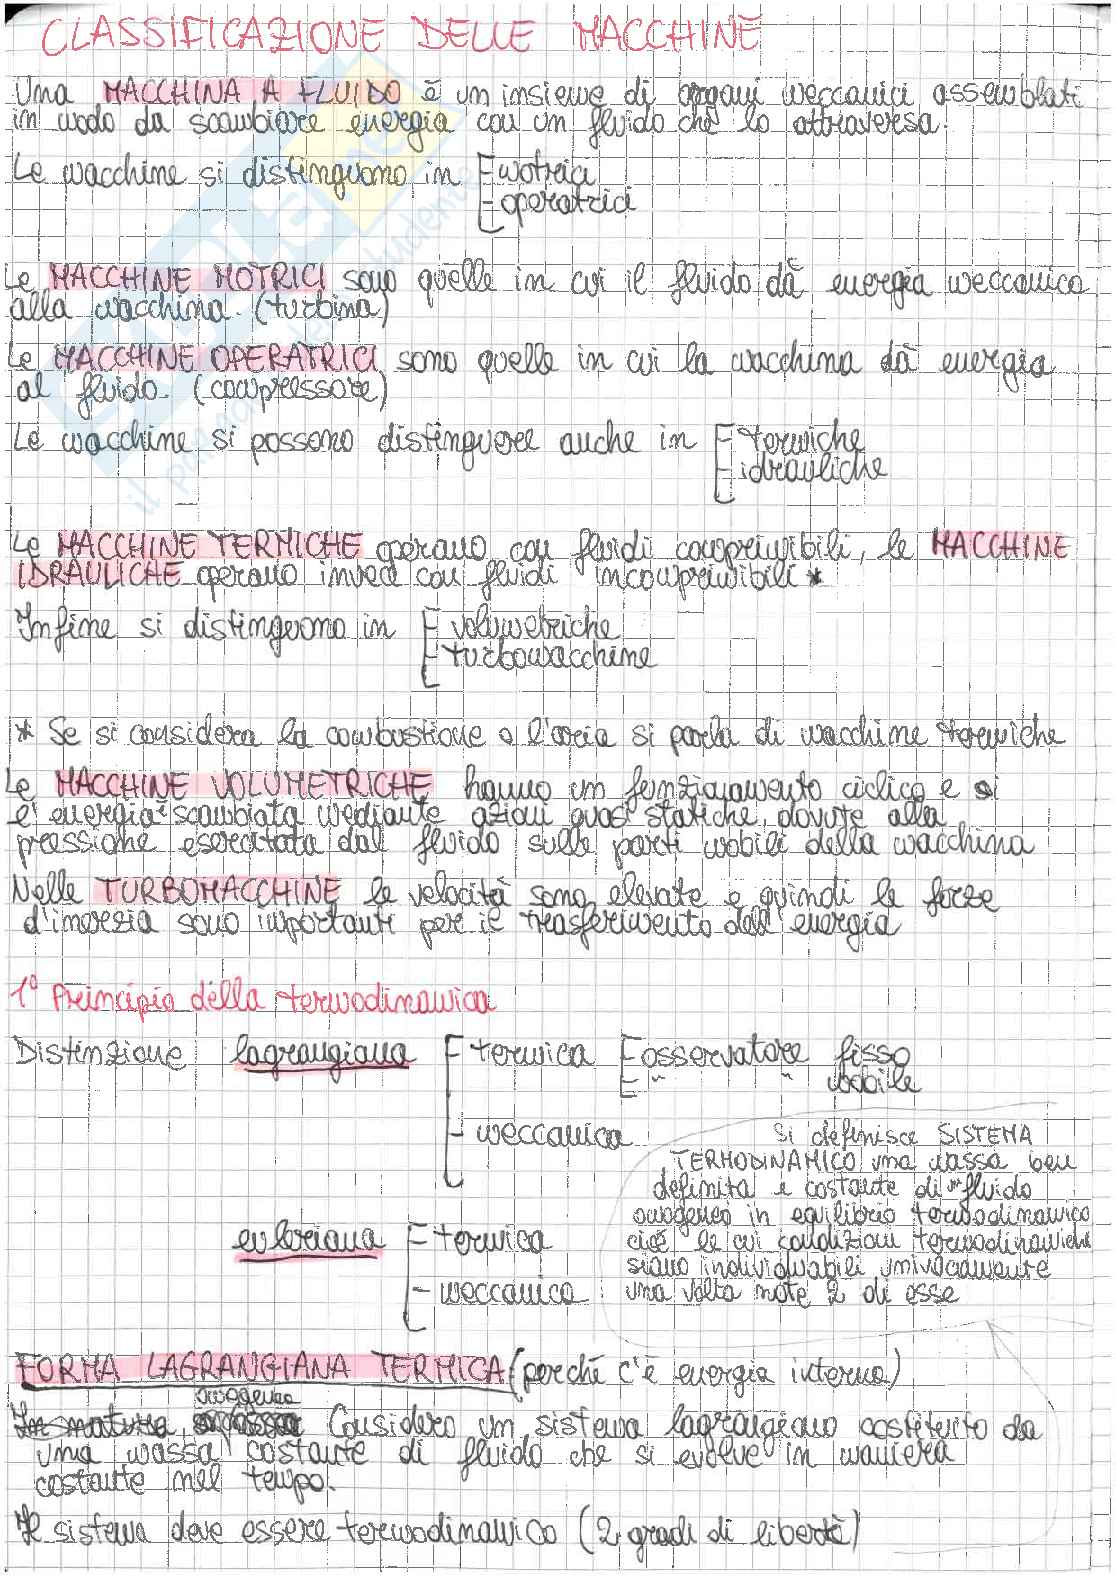 CLASSIFICAZIONE DELLE MACCHINE
Una MACCHINA A FLUIDO è un insieme di organi meccanici assemblati
in modo da scambiare energia con un fluido che lo attraversa.
Le macchine si distinguono in - motrici
- operatrici
Le MACCHINE MOTRICI sono quelle in cui il fluido dà energia meccanica
alla macchina. (turbina)
Le MACCHINE OPERATRICI sono quelle in cui la macchina dà energia
al fluido. (compressore)
Le macchine si possono distinguere anche in - termiche
- idrauliche
Le MACCHINE TERMICHE operano con fluidi comprimibili, le MACCHINE
IDRAULICHE operano invece con fluidi incomprimibili *
Infine si distinguono in - volumetriche
- turbomacchine
* Se si considera la combustione o l'aria si parla di macchine termiche
Le MACCHINE VOLUMETRICHE hanno un funzionamento ciclico e si
l'energia è scambiata mediante azioni quasi statiche, dovute alla
pressione esercitata dal fluido sulle parti mobili della macchina
Nelle TURBOMACCHINE le velocità sono elevate e quindi le forze
d'inerzia sono importanti per il trasferimento dell'energia
1° Principio della termodinamica
Distinzione lagrangiana - termica - osservatore fisso
- " " mobile
- meccanica
Si definisce SISTEMA
TERMODINAMICO una massa ben
definita e costante di un fluido
omogeneo in equilibrio termodinamico
cioè le cui condizioni termodinamiche
siano individuabili univocamente
una volta note 2 di esse
euleriana - termica
- meccanica
FORMA LAGRANGIANA TERMICA (perché c'è energia interna)
omogeneo
In natura, Considero un sistema lagrangiano costituito da
una massa costante di fluido che si evolve in maniera
costante nel tempo.
Il sistema deve essere termodinamico (2 gradi di libertà)